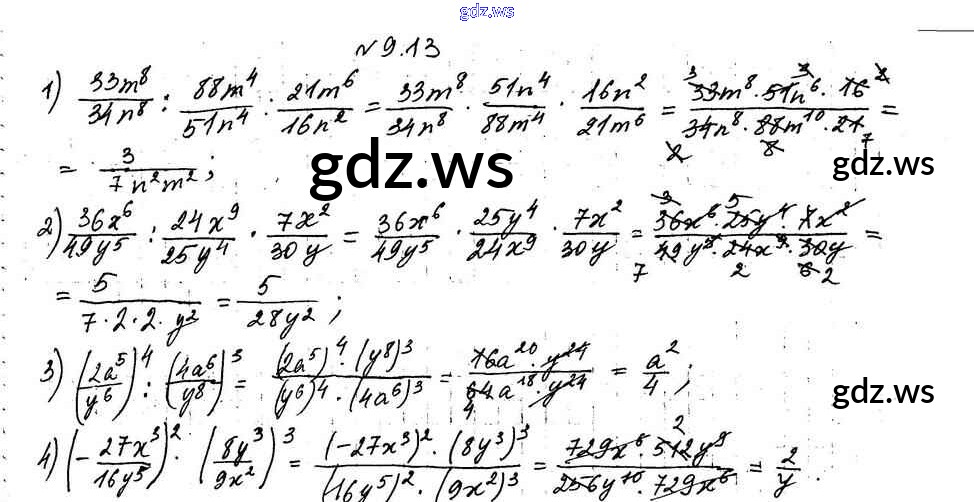 gdz.ws
№ 9.13
1) 33m⁸/34n⁸ : 88m⁴/51n⁴ · 21m⁶/16n² = 33m⁸/34n⁸ · 51n⁴/88m⁴ · 16n²/21m⁶ = 33m⁸·51n⁶·16/34n⁸·88m¹⁰·21 =
= 3/7n²m²;
gdz.ws
gdz.ws
2) 36x⁶/49y⁵ : 24x⁹/25y⁴ · 7x²/30y = 36x⁶/49y⁵ · 25y⁴/24x⁹ · 7x²/30y = 36x⁶·25y⁴·7x²/49y⁵·24x⁹·30y =
= 5/7·2·2·y² = 5/28y²;
3) (2a⁵/y⁶)⁴ : (4a⁶/y⁸)³ = (2a⁵)⁴·(y⁸)³/(y⁶)⁴·(4a⁶)³ = 16a²⁰·y²⁴/64a¹⁸·y²⁴ = a²/4;
gdz.ws
4) (-27x³/16y⁵)² · (8y³/9x²)³ = (-27x³)²·(8y³)³/(16y⁵)²·(9x²)³ = 729x⁶·512y⁹/256y¹⁰·729x⁶ = 2/y.